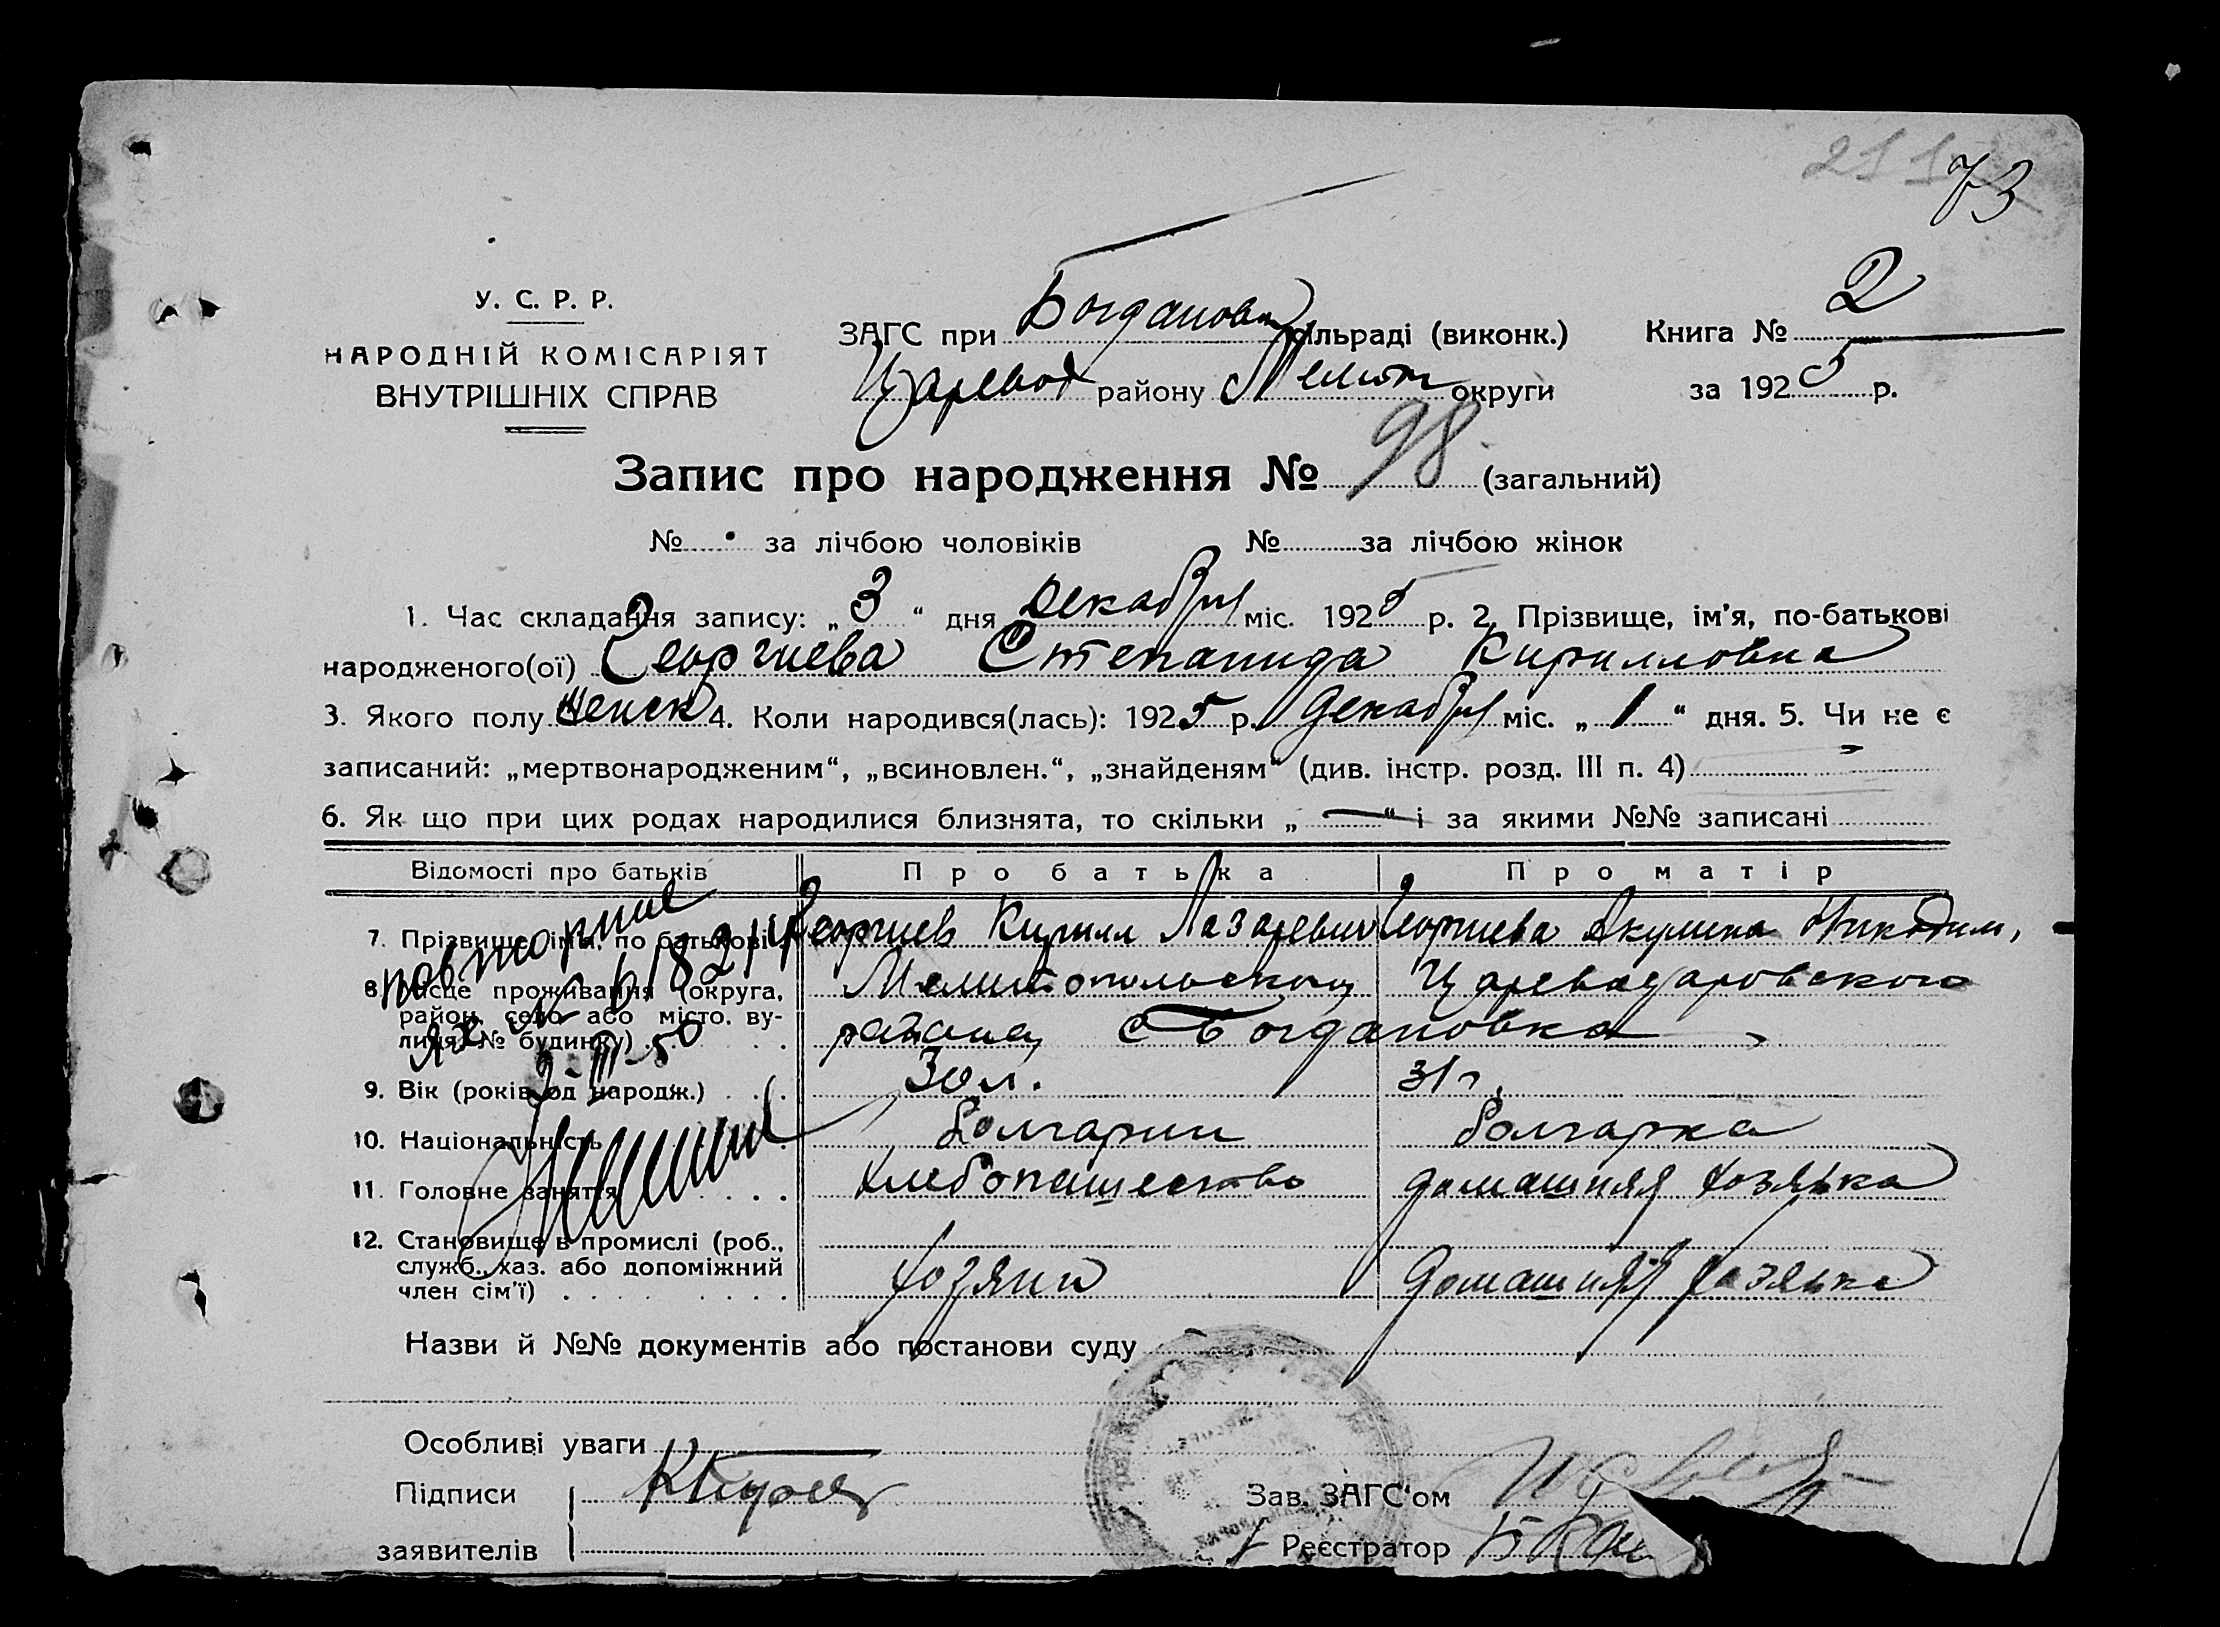 211
73
У. С. Р. Р.
НАРОДНІЙ КОМІСАРІЯТ
ВНУТРІШНІХ СПРАВ
ЗАГС при Богданов сільраді (виконк.) Книга № 2
Царевод району Мелит округи за 1925 р.
Запис про народження № 98 (загальний)
№ за лічбою чоловіків № за лічбою жінок
1. Час складання запису: „3“ дня декабря міс. 1925 р. 2. Прізвище, ім’я, по-батькові
народженого(ої) Георгиева Степанида Кирилловна
3. Якого полу женск 4. Коли народився(лась): 1925 р. декабря міс. „1“ дня. 5. Чи не є
записаний: „мертвонародженим“, „всиновлен.“, „знайденям“ (див. інстр. розд. III п. 4)
6. Як що при цих родах народилися близнята, то скільки „—“ і за якими №№ записані
Відомості про батьків Про батька Про матір
7. Прізвище, ім’я, по батькові Георгиев Кирилл Лазаревич Георгиева Акулина Никодим,
8. Місце проживання (округа, Мелитопольского Цареводаровского
район, село або місто, ву- района с Богдановка
лиця, № будинку)
повторное
ЯЖ № 618211
2-III-50
9. Вік (років од народж.) 30 л. 31 г.
10. Національність болгарин болгарка
11. Головне заняття хлебопашество домашняя хозяйка
12. Становище в промислі (роб.,
служб., хаз. або допоміжний хозяин домашняя хозяйка
член сім’ї)
Назви й №№ документів або постанови суду
Особливі уваги —
Підписи
Зав. ЗАГС‘ом
заявителів
Реєстратор